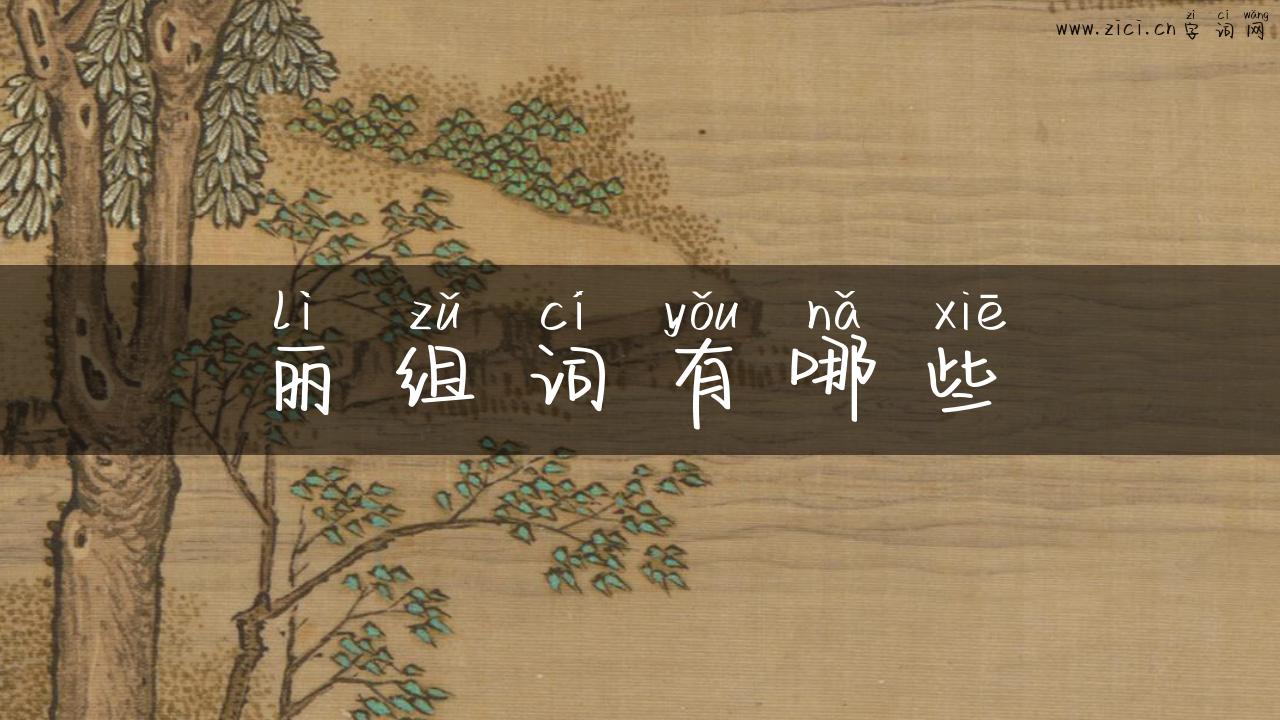 zì cí wǎng
www.zici.cn 字 词 网
lì zǔ cí yǒu nǎ xiē
丽 组 词 有 哪 些